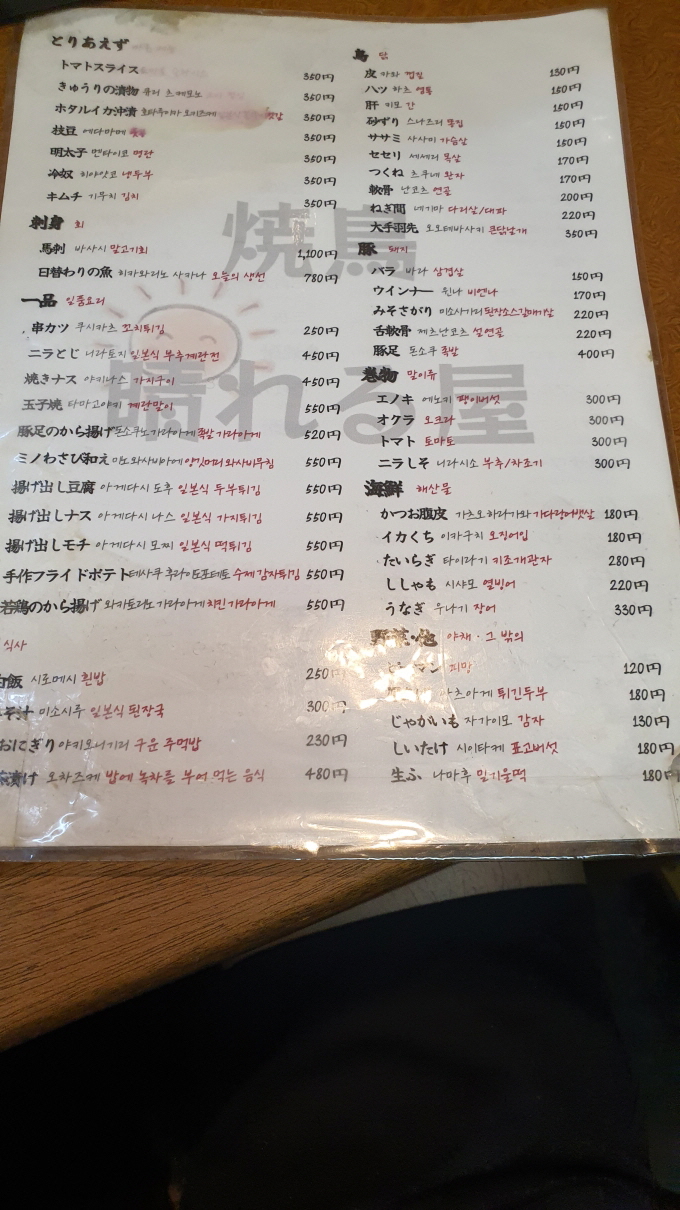 とりあえず
トマトスライス 350円
きゅうりの漬物 큐리 츠케모노 350円
ホタルイカ沖漬 호타루이카 오키즈케 젓갈 350円
枝豆 에다마메 350円
明太子 멘타이코 명란 350円
冷奴 히야얏코 냉두부 350円
キムチ 기무치 김치 350円
刺身 회
馬刺 바사시 말고기회 1,100円
日替わりの魚 히카와리노 사카나 오늘의 생선 780円
一品 일품요리
串カツ 쿠시카츠 꼬치튀김 250円
ニラとじ 니라토지 일본식 부추계란전 450円
焼きナス 야키나스 가지구이 450円
玉子焼 타마고야키 계란말이 550円
豚足のから揚げ 돈소쿠노 가라아게 족발 가라아게 520円
ミノわさび和え 미노 와사비아에 양깃머리 와사비무침 550円
揚げ出し豆腐 아게다시 도후 일본식 두부튀김 550円
揚げ出しナス 아게다시 나스 일본식 가지튀김 550円
揚げ出しモチ 아게다시 모찌 일본식 떡튀김 550円
手作フライドポテト 테사쿠 후라이도포테토 수제 감자튀김 550円
若鶏のから揚げ 와카토리노 가라아게 치킨 가라아게 550円
식사
白飯 시로메시 흰밥 250円
みそ汁 미소시루 일본식 된장국 300円
おにぎり 야키오니기리 구운 주먹밥 230円
茶漬け 오차즈케 밥에 녹차를 부어 먹는 음식 480円
鳥 닭
皮 카와 껍질 130円
ハツ 하츠 염통 150円
肝 키모 간 150円
砂ずり 스나즈리 똥집 150円
ササミ 사사미 가슴살 150円
セセリ 세세리 목살 170円
つくね 츠쿠네 완자 170円
軟骨 난코츠 연골 200円
ねぎ間 네기마 다리살/대파 220円
大手羽先 오오테바사키 큰닭날개 350円
豚 돼지
バラ 바라 삼겹살 150円
ウインナー 윈나 비엔나 170円
みそさがり 미소사가리 된장소스갈매기살 220円
舌軟骨 제츠난코츠 설연골 220円
豚足 돈소쿠 족발 400円
巻物 말이류
エノキ 에노키 팽이버섯 300円
オクラ 오크라 300円
トマト 토마토 300円
ニラしそ 니라시소 부추/차조기 300円
海鮮 해산물
かつお腹皮 가츠오 하라가와 가다랑어뱃살 180円
イカくち 이카구치 오징어입 180円
たいらぎ 타이라기 키조개관자 280円
ししゃも 시샤모 열빙어 220円
うなぎ 우나기 장어 330円
野菜・他 야채・그 밖의
ピーマン 피망 120円
아츠아게 튀긴두부 180円
じゃがいも 자가이모 감자 130円
しいたけ 시이타케 표고버섯 180円
生ふ 나마후 밀기울떡 180円
焼鳥
晴れる屋